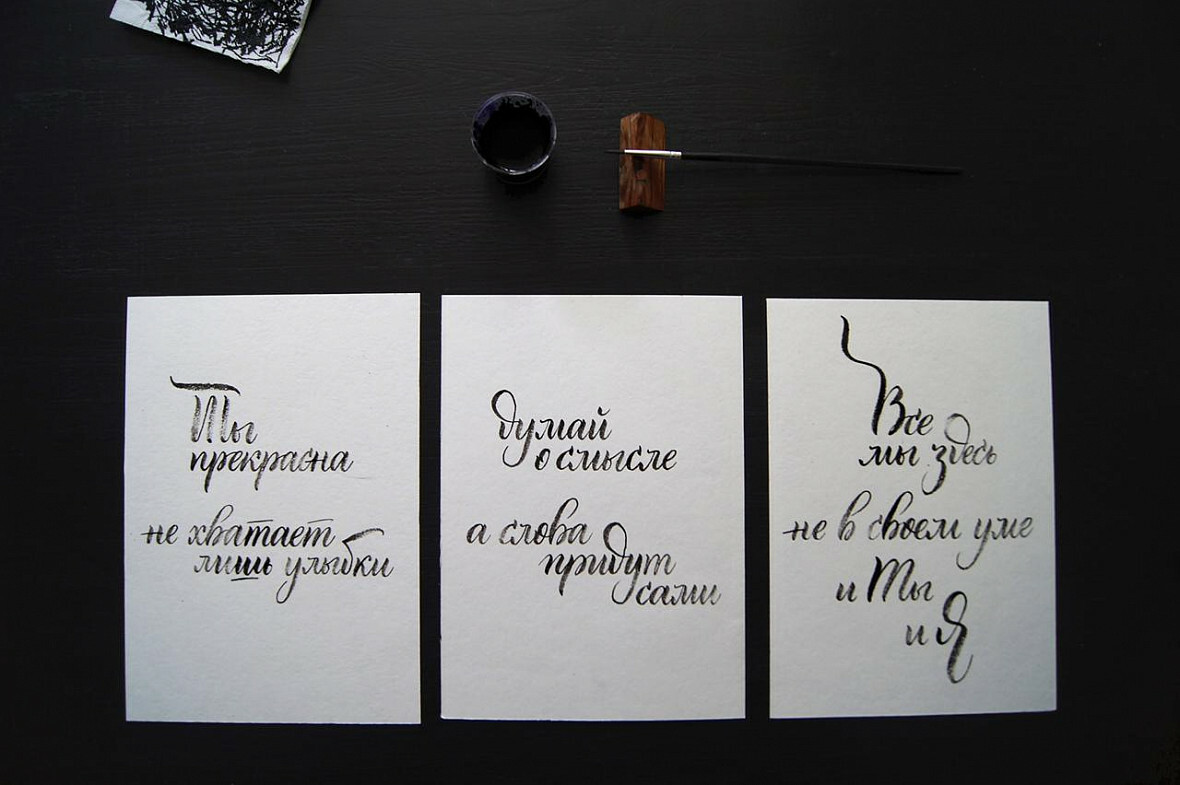 Ты
прекрасна
не хватает
лишь улыбки
думай
о смысле
а слова
придут
сами
Все
мы здесь
не в своем уме
и Ты
и Я